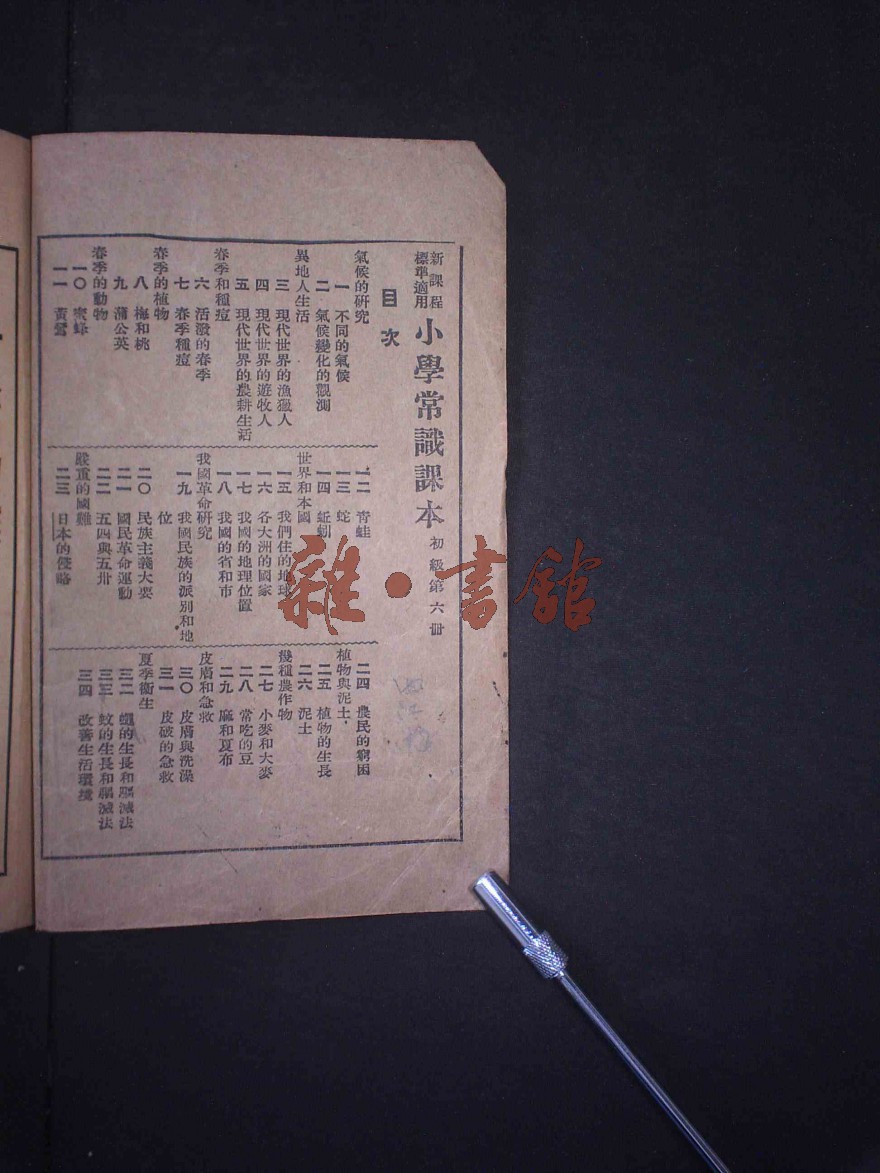 新課程
標準適用
小學常識課本 初級第六冊
目次
氣候的研究
一 不同的氣候
二 氣候變化的觀測
異地人生活
三 現代世界的漁獵人
四 現代世界的遊牧人
五 現代世界的農耕生活
春季和種痘
六 活潑的春季
七 春季種痘
春季的植物
八 梅和桃
九 蒲公英
春季的動物
一〇 蜜蜂
一一 黃鶯
一二 青蛙
一三 蛇
一四 蚯蚓
世界和本國
一五 我們住的地球
一六 各大洲的國家
一七 我國的地理位置
一八 我國的省和市
我國革命研究
一九 我國民族的派別和地
位
二〇 民族主義大要
二一 國民革命運動
二二 五四與五卅
嚴重的國難
二三 日本的侵略
二四 農民的窮困
植物與泥土
二五 植物的生長
二六 泥土
幾種農作物
二七 小麥和大麥
二八 常吃的豆
二九 麻和夏布
皮膚和急救
三〇 皮膚與洗澡
三一 皮破的急救
夏季衞生
三二 蠅的生長和驅滅法
三三 蚊的生長和驅滅法
三四 改善生活環境
雜·書館